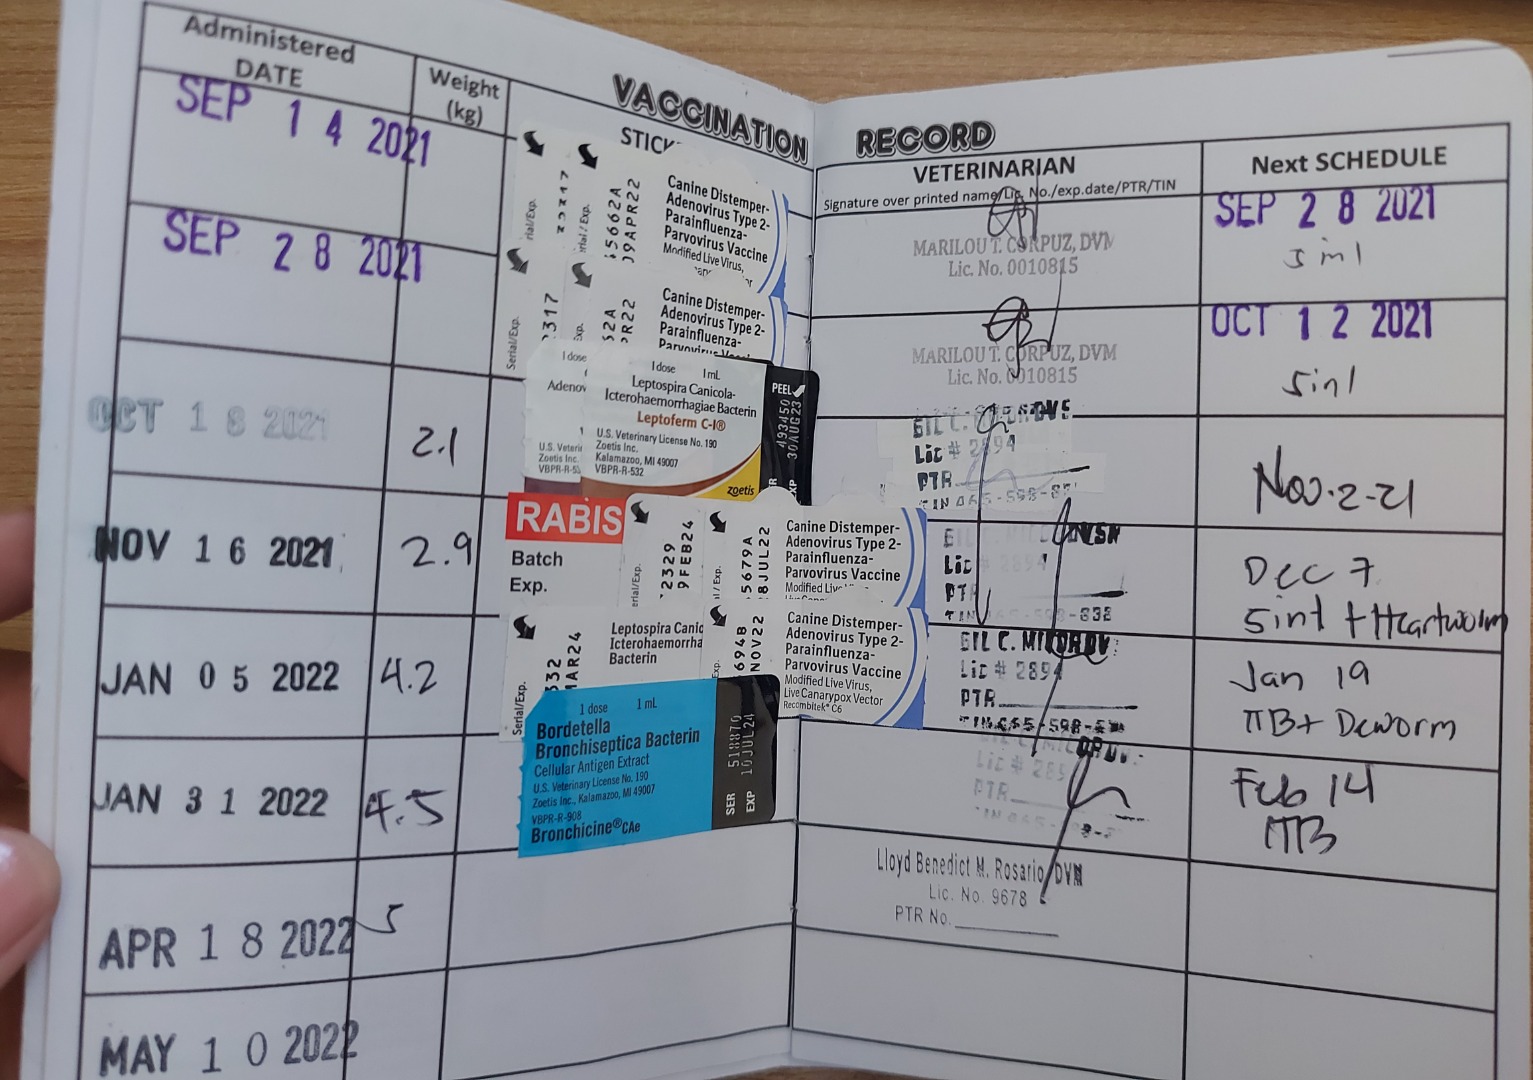 VACCINATION RECORD
Administered
DATE
Weight
(kg)
VETERINARIAN
Signature over printed name/Lic. No./exp.date/PTR/TIN
Next SCHEDULE
SEP 14 2021
Serial/Exp.
5662A
09APR22
Canine Distemper-
Adenovirus Type 2-
Parainfluenza-
Parvovirus Vaccine
Modified Live Virus,
MARILOU T. CORPUZ, DVM
Lic. No. 0010815
SEP 28 2021
5 in 1
SEP 28 2021
317
Serial/Exp.
Canine Distemper-
Adenovirus Type 2-
Parainfluenza-
MARILOU T. CORPUZ, DVM
Lic. No. 0010815
OCT 12 2021
5 in 1
OCT 18 2021
2.1
1 dose
1 dose 1 mL
Leptospira Canicola-
Icterohaemorrhagiae Bacterin
Leptoferm C-I®
U.S. Veterinary License No. 190
Zoetis Inc.
Kalamazoo, MI 49007
VBPR-R-532
zoetis
PEEL
493450
30AUG23
Lic # 2894
PTR
Nov-2-21
NOV 16 2021
2.9
RABIS
Batch
Exp.
2329
9FEB24
5679A
8JUL22
Canine Distemper-
Adenovirus Type 2-
Parainfluenza-
Parvovirus Vaccine
Modified
Dec 7
5in1 + Heartworm
JAN 05 2022
4.2
Serial/Exp.
332
MAR24
Leptospira
Icterohaemorrha
Bacterin
694B
NOV22
Canine Distemper-
Adenovirus Type 2-
Parainfluenza-
Parvovirus Vaccine
Modified Live Virus,
Live Canarypox Vector
Recombitek® C6
GIL C.
Lic # 2894
PTR
Jan 19
ITB + Deworm
JAN 31 2022
4.5
1 dose 1 mL
Bordetella
Bronchiseptica Bacterin
Cellular Antigen Extract
U.S. Veterinary License No. 190
Zoetis Inc., Kalamazoo, MI 49007
VBPR-R-908
Bronchicine®CAe
SER 518870
EXP 10JUL24
PTR
Feb 14
ITB
APR 18 2022
5
Lloyd Benedict M. Rosario, DVM
Lic. No. 9678
PTR No.
MAY 10 2022